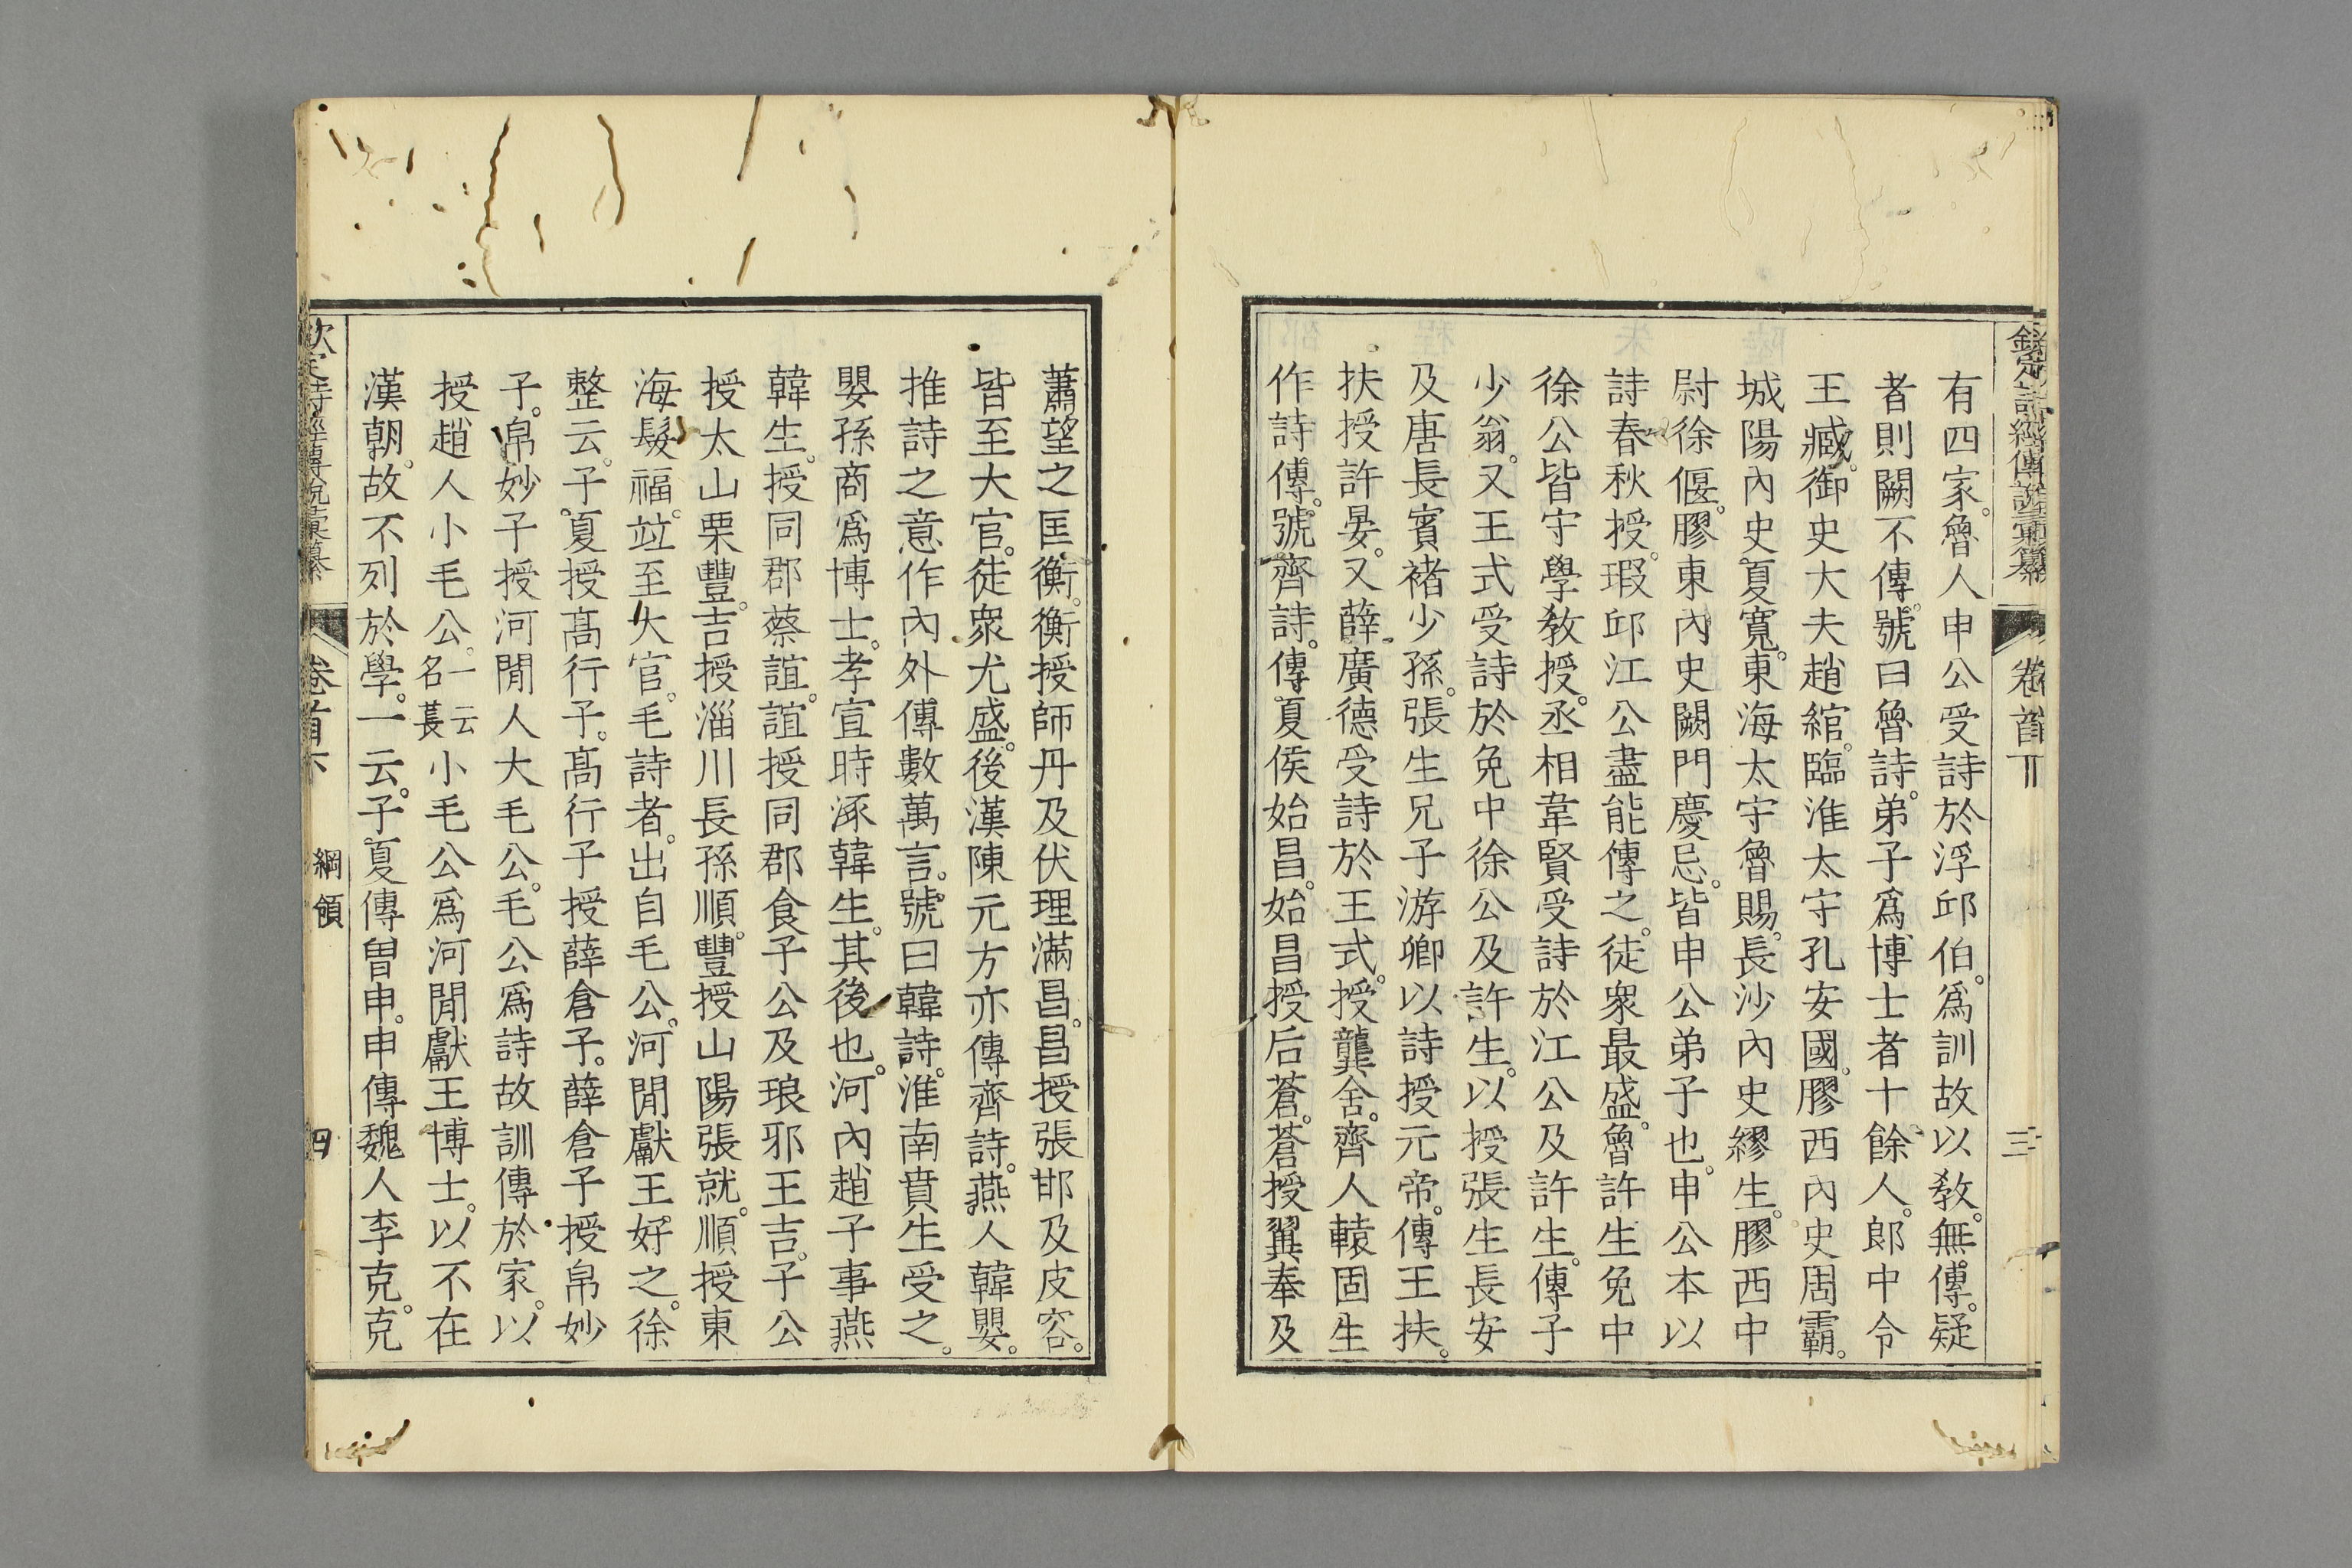 欽定詩經傳說彙纂 卷首下 三
有四家。魯人申公受詩於浮邱伯。爲訓故以敎。無傳。疑
者則闕不傳。號曰魯詩。弟子爲博士者十餘人。郞中令
王臧。御史大夫趙綰。臨淮太守孔安國。膠西內史周霸。
城陽內史夏寬。東海太守魯賜。長沙內史繆生。膠西中
尉徐偃。膠東內史闕門慶忌。皆申公弟子也。申公本以
詩春秋授。瑕邱江公盡能傳之。徒衆最盛。魯許生免中
徐公皆守學敎授。丞相韋賢受詩於江公及許生。傳子
少翁。又王式受詩於免中徐公及許生。以授張生長安
及唐長賓褚少孫。張生兄子游卿以詩授元帝。傳王扶。
扶授許晏。又薛廣德受詩於王式。授龔舍。齊人轅固生
作詩傳。號齊詩。傳夏侯始昌。始昌授后蒼。蒼授翼奉及
蕭望之匡衡。衡授師丹及伏理滿昌。昌授張邯及皮容。
皆至大官。徒衆尤盛。後漢陳元方亦傳齊詩。燕人韓嬰。
推詩之意作內外傳數萬言。號曰韓詩。淮南賁生受之。
嬰孫商爲博士。孝宣時涿韓生。其後也。河內趙子事燕
韓生。授同郡蔡誼。誼授同郡食子公及琅邪王吉。子公
授太山栗豐。吉授淄川長孫順。豐授山陽張就。順授東
海髮福。竝至大官。毛詩者。出自毛公。河閒獻王好之。徐
整云。子夏授高行子。高行子授薛倉子。薛倉子授帛妙
子。帛妙子授河閒人大毛公。毛公爲詩故訓傳於家。以
授趙人小毛公。一云名萇小毛公爲河閒獻王博士。以不在
漢朝。故不列於學。一云。子夏傳曾申。申傳魏人李克。克
欽定詩經傳說彙纂 卷首下 綱領 四